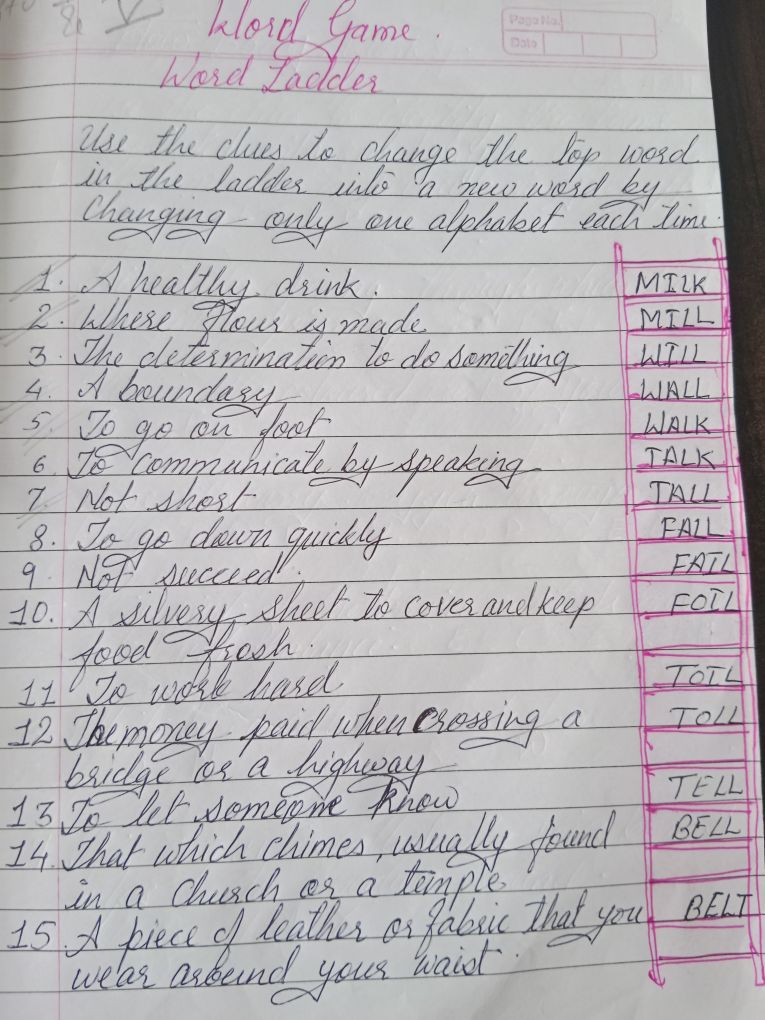 Word Game.
Page No.
Date
Word Ladder
Use the clues to change the top word
in the ladder into a new word by
Changing only one alphabet each time.
1. A healthy drink. MILK
2. Where flour is made MILL
3. The determination to do something WILL
4. A boundary WALL
5. To go on foot WALK
6. To communicate by speaking TALK
7. Not short TALL
8. To go down quickly FALL
9. Not succeed. FAIL
10. A silvery sheet to cover and keep FOIL
food fresh.
11 To work hard TOIL
12 The money paid when crossing a TOLL
bridge or a highway
13 To let someone know TELL
14. That which chimes, usually found BELL
in a church or a temple.
15. A piece of leather or fabric that you BELT
wear around your waist.